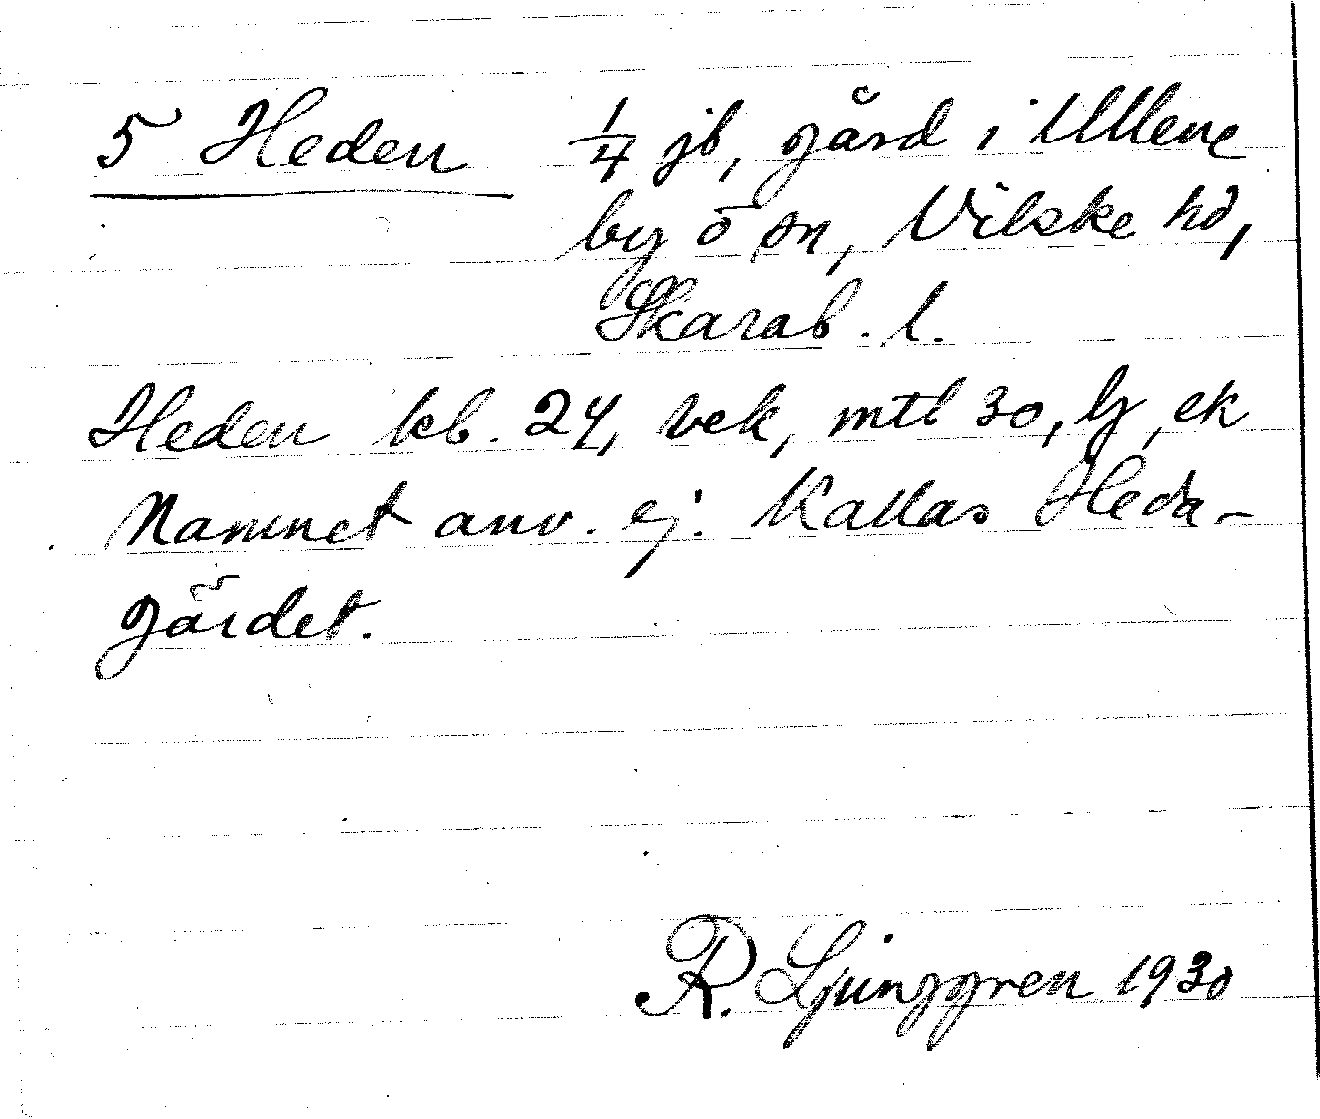 5 Heden 1/4 jb, gård i Ullene
by o sn, Vilske hd,
Skarab. l.
Heden kb. 24, vek, mtl 30, lj, ek
Namnet anv. ej. Kallas Heda-
gärdet.
R. Ljunggren 1930